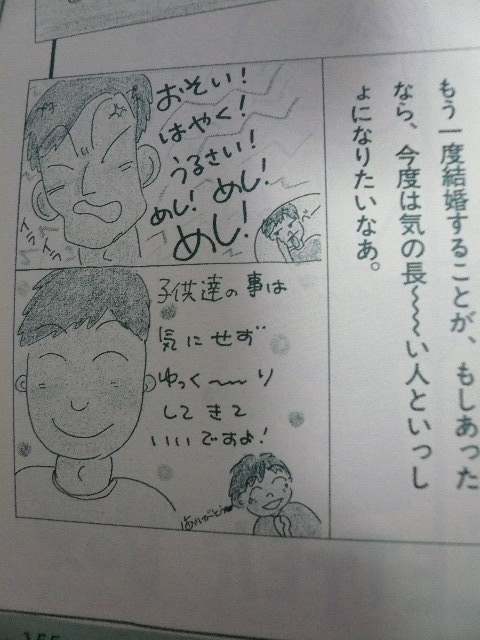 もう一度結婚することが、もしあった
なら、今度は気の長～～～い人といっし
ょになりたいなあ。
おそい！
はやく！
うるさい！
めし！めし！
めし！
イライラ
子供達の事は
気にせず
ゆっく～～り
してきて
いいですよ！
ありがとう